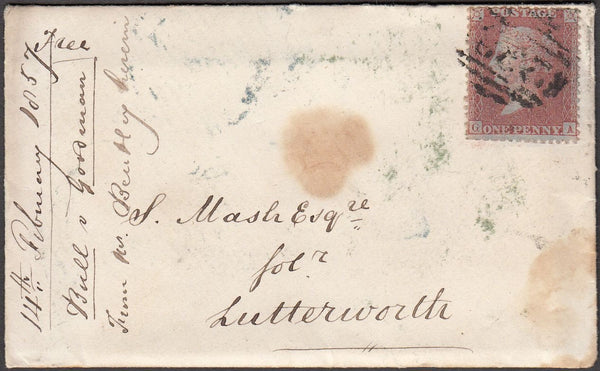 POSTAGE
G A
ONE PENNY
S. Mash Esqre
Solr
Lutterworth
14th February 1857 Free
Bull v Goodman
From Mr. Bentley herein